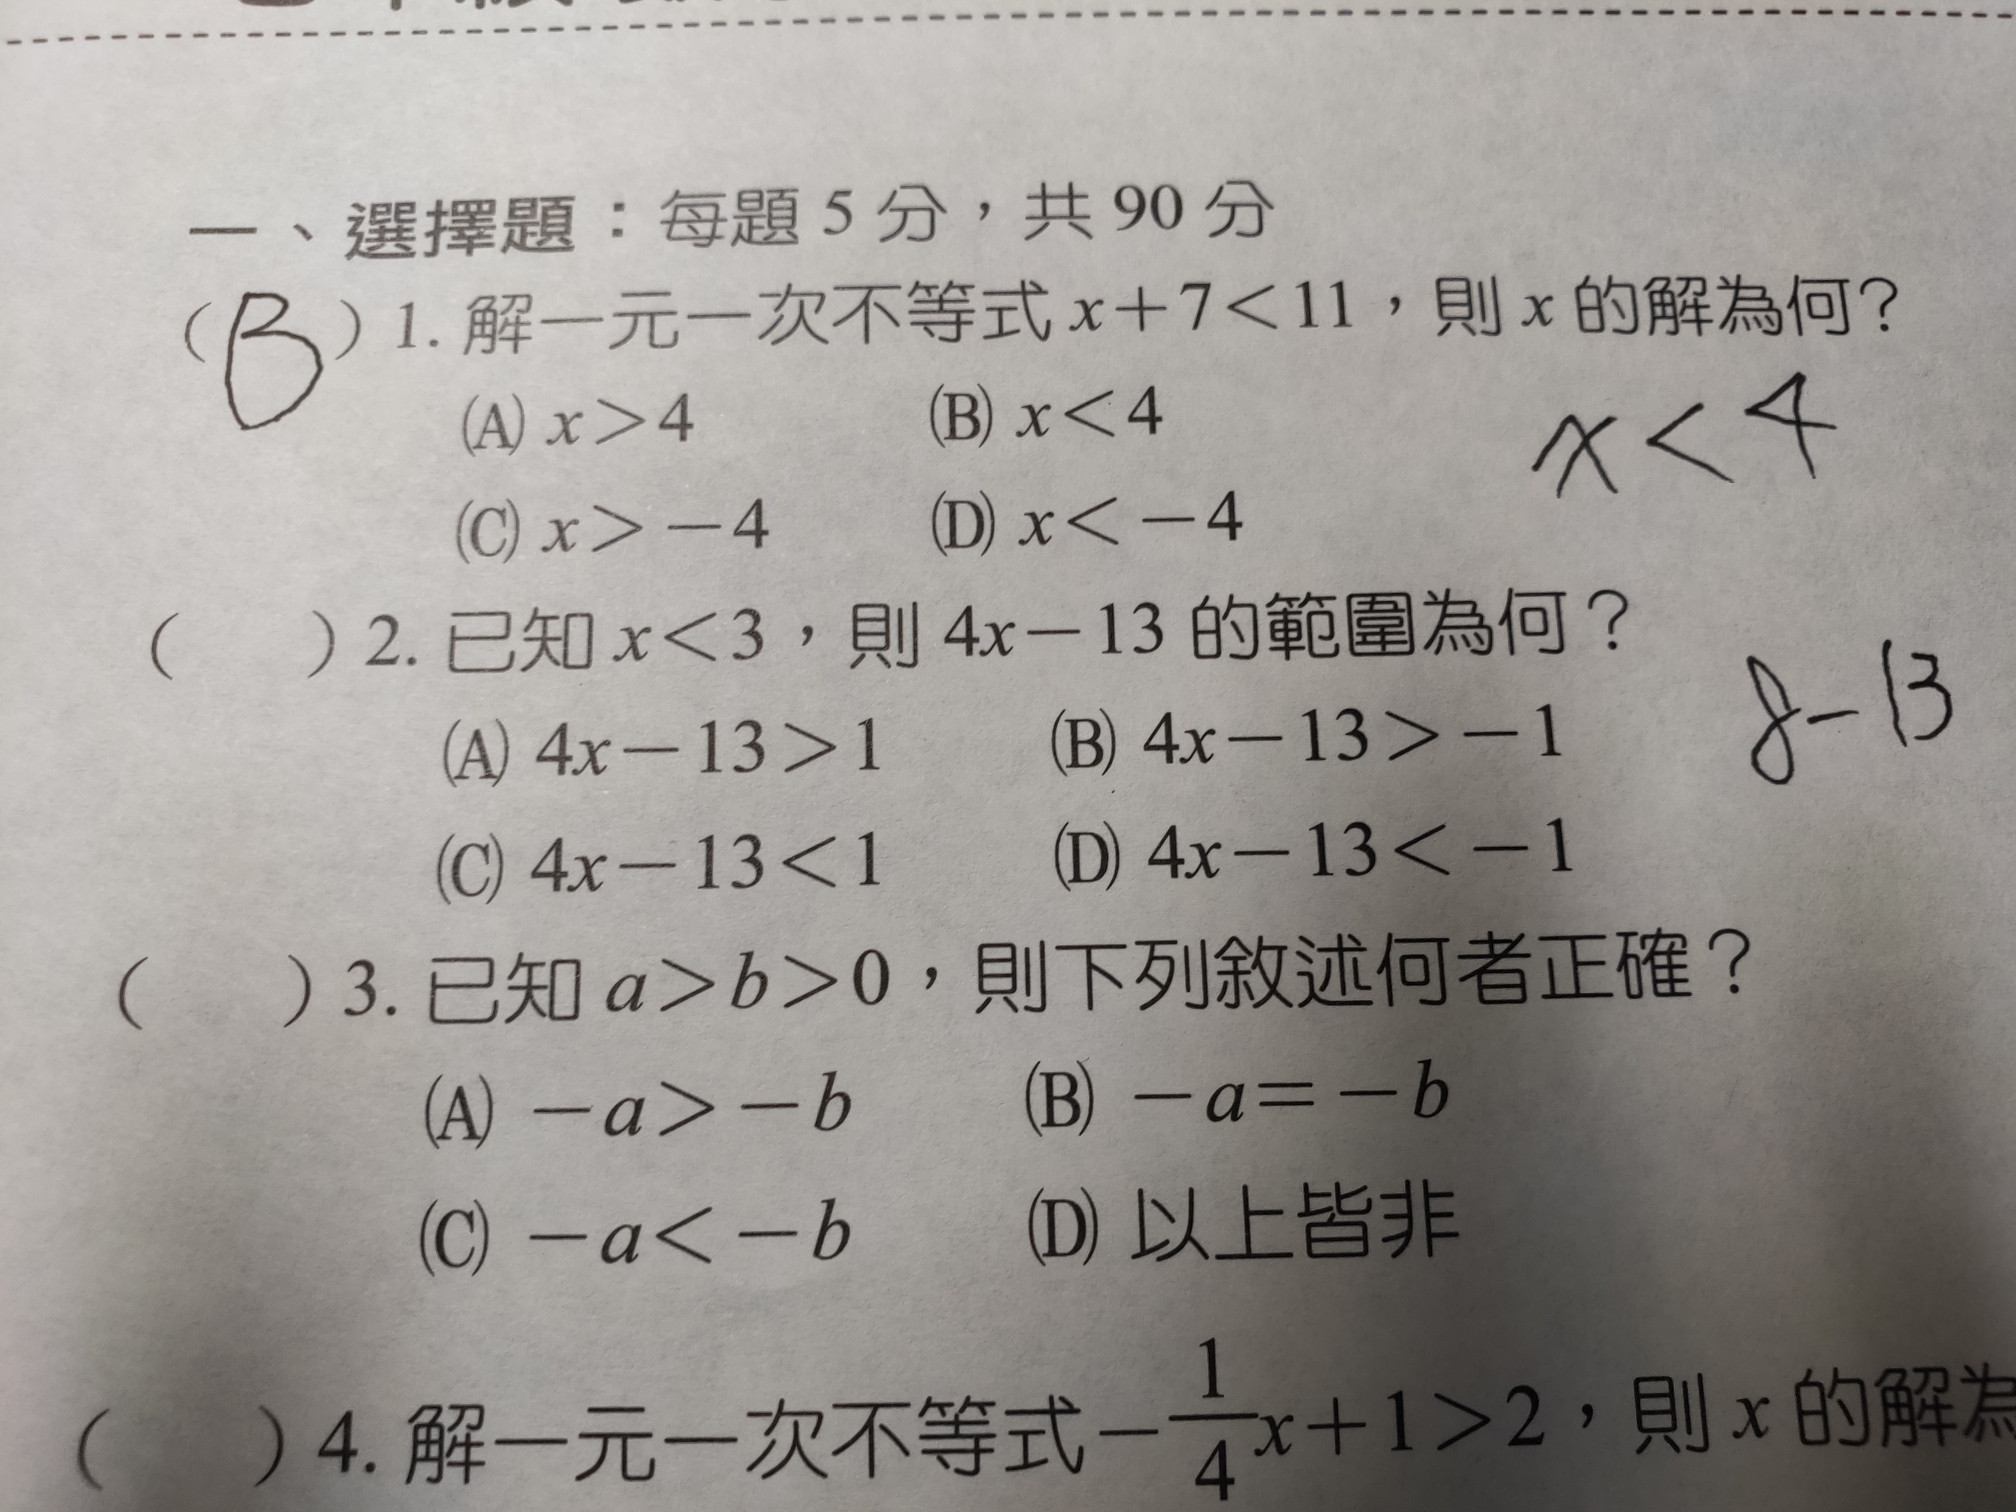 一、選擇題：每題 5 分，共 90 分
( B ) 1. 解一元一次不等式 x+7<11，則 x 的解為何？
(A) x>4 (B) x<4
x<4
(C) x>-4 (D) x<-4
( ) 2. 已知 x<3，則 4x-13 的範圍為何？
8-13
(A) 4x-13>1 (B) 4x-13>-1
(C) 4x-13<1 (D) 4x-13<-1
( ) 3. 已知 a>b>0，則下列敘述何者正確？
(A) -a>-b (B) -a=-b
(C) -a<-b (D) 以上皆非
( ) 4. 解一元一次不等式 -1/4x+1>2，則 x 的解為